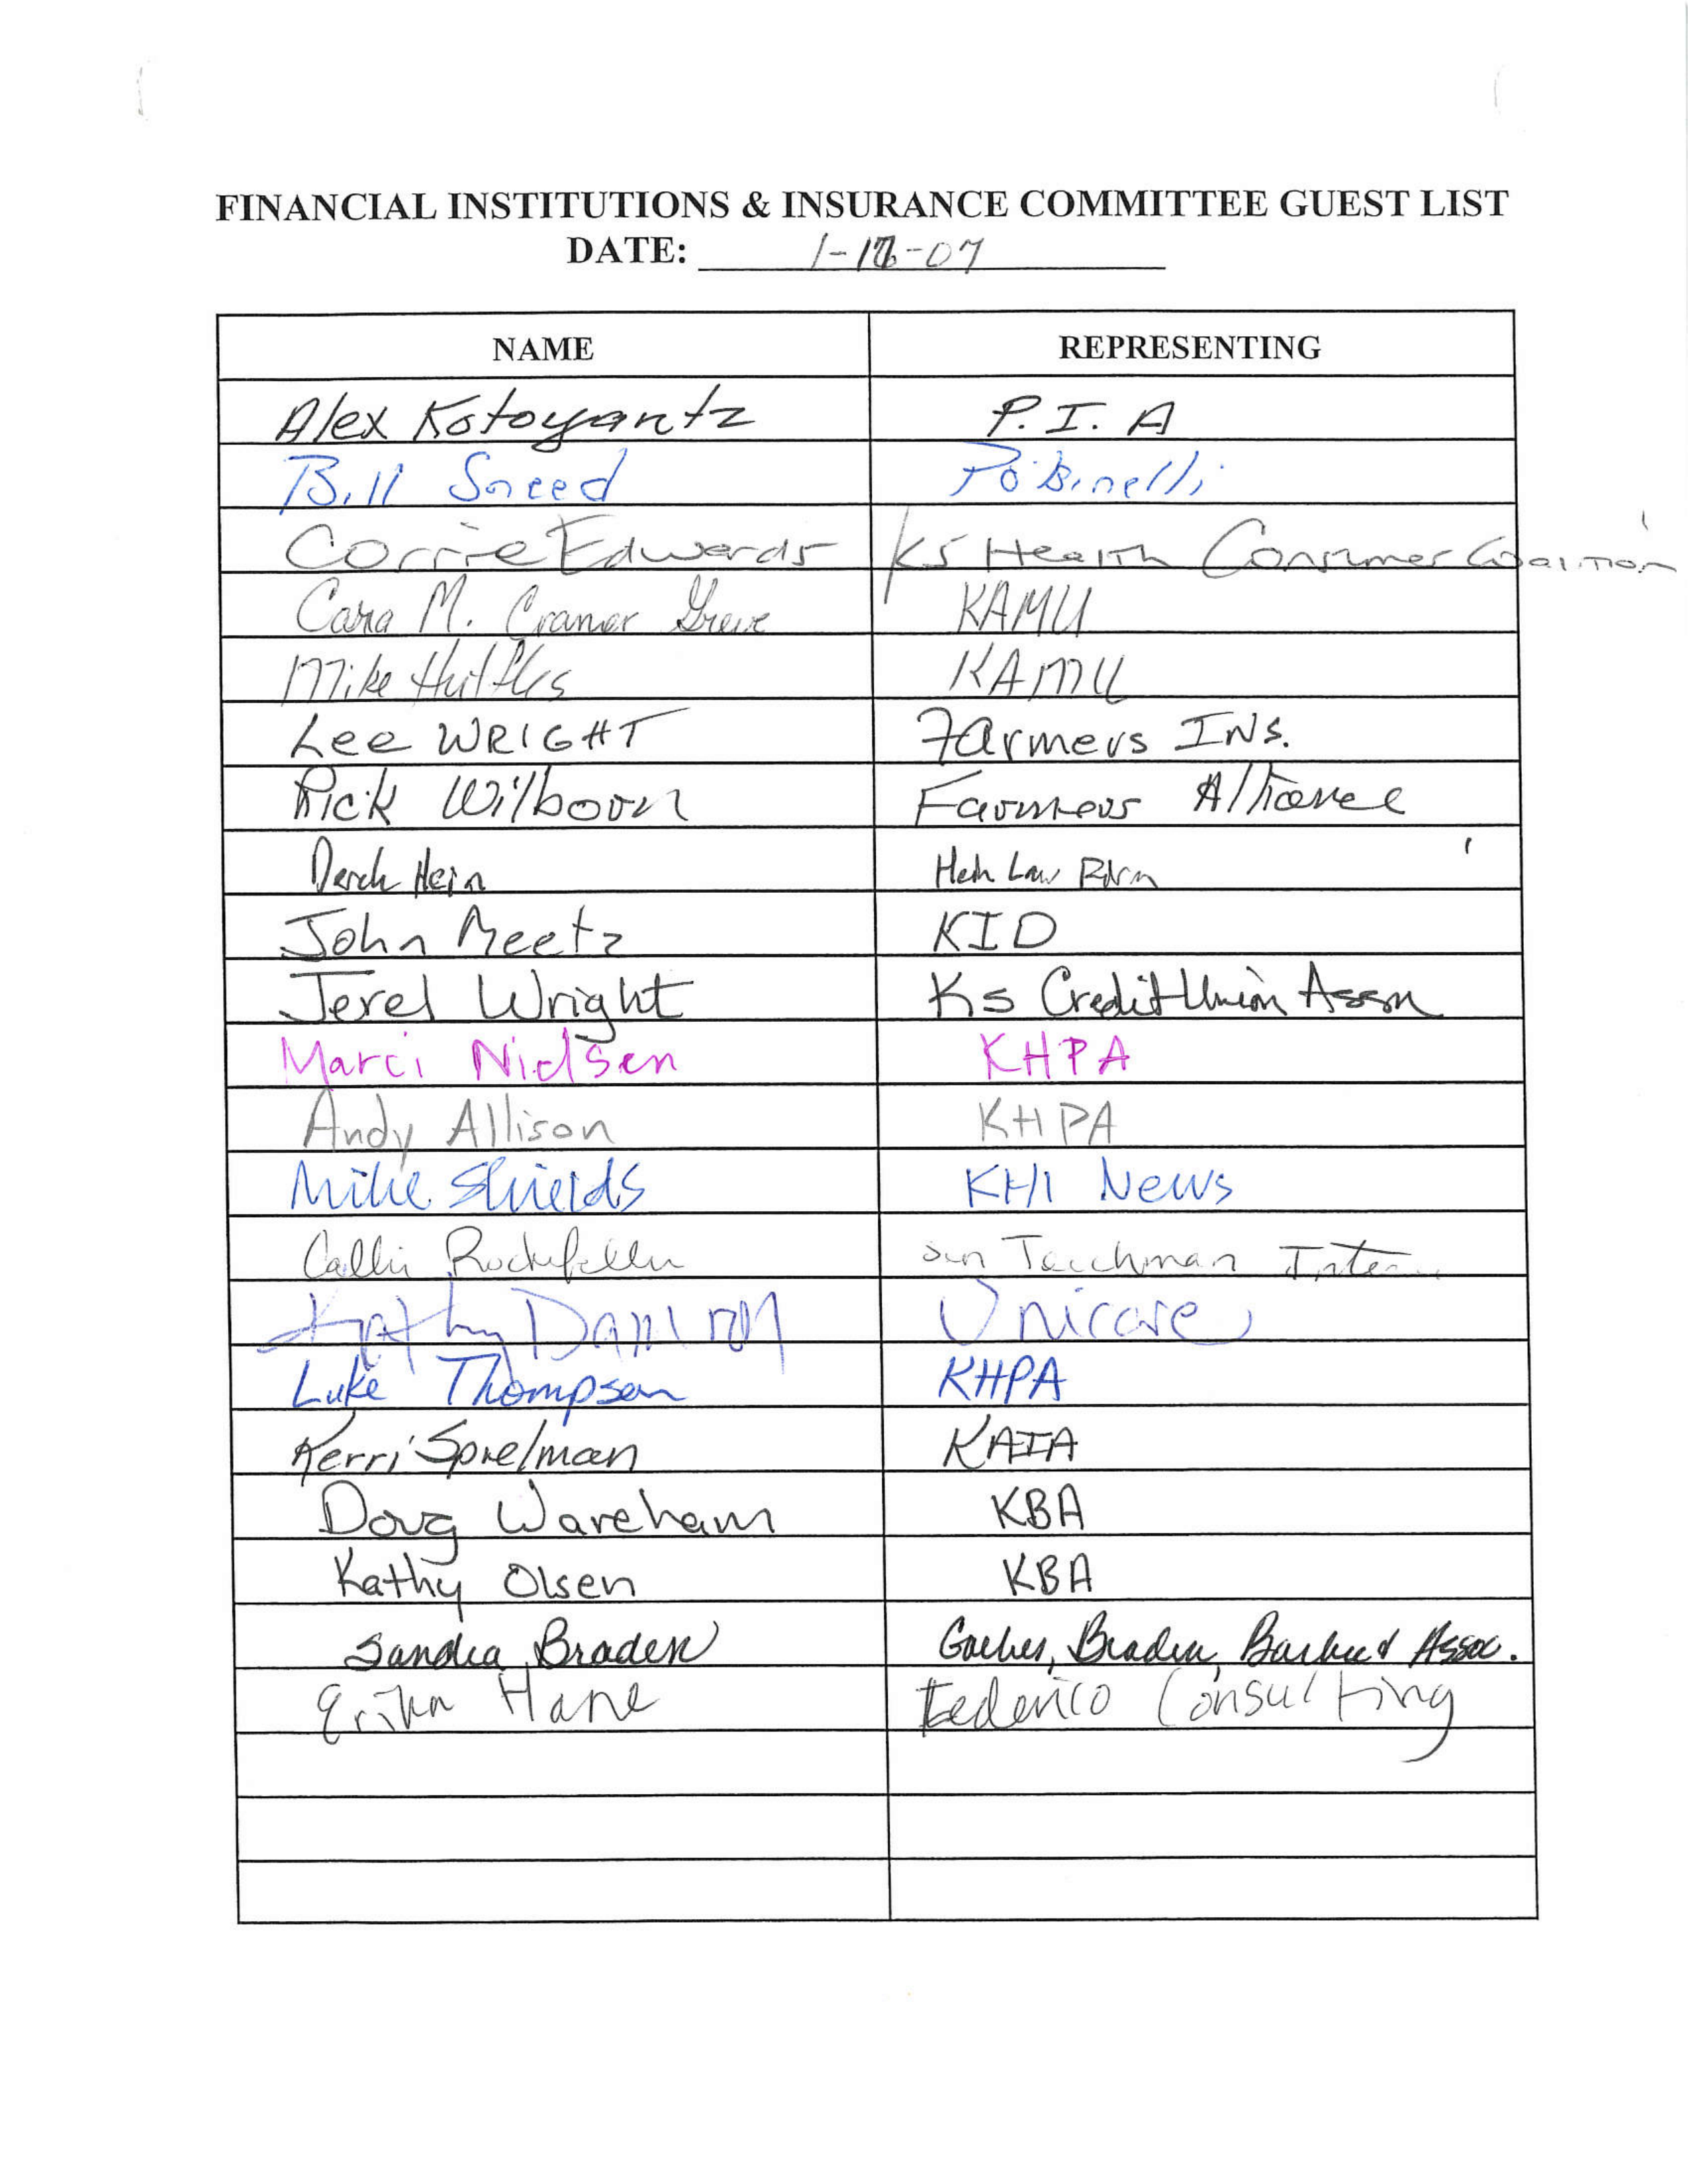 FINANCIAL INSTITUTIONS & INSURANCE COMMITTEE GUEST LIST
DATE:
NAME REPRESENTING
Alex Kotoyantz P.I.A
Bill Sneed Polsinelli
Corrie Edwards KS Health Consumer Coalition
Cara M. Cramer Greve KAMU
Mike Huttles KAMU
Lee WRIGHT Farmers INS.
Rick Wilborn Farmers Alliance
Derek Hein Hein Law Firm
John Meetz KID
Jerel Wright Ks Credit Union Assn
Marci Nielsen KHPA
Andy Allison KHPA
Mike Shields KHI News
Callie Sen Teichman Intern
Kathy Damron Unicare
Luke Thompson KHPA
Kerri Spielman KAIA
Doug Wareham KBA
Kathy Olsen KBA
Sandra Braden Braden, Assoc.
Erika Hane Federico Consulting